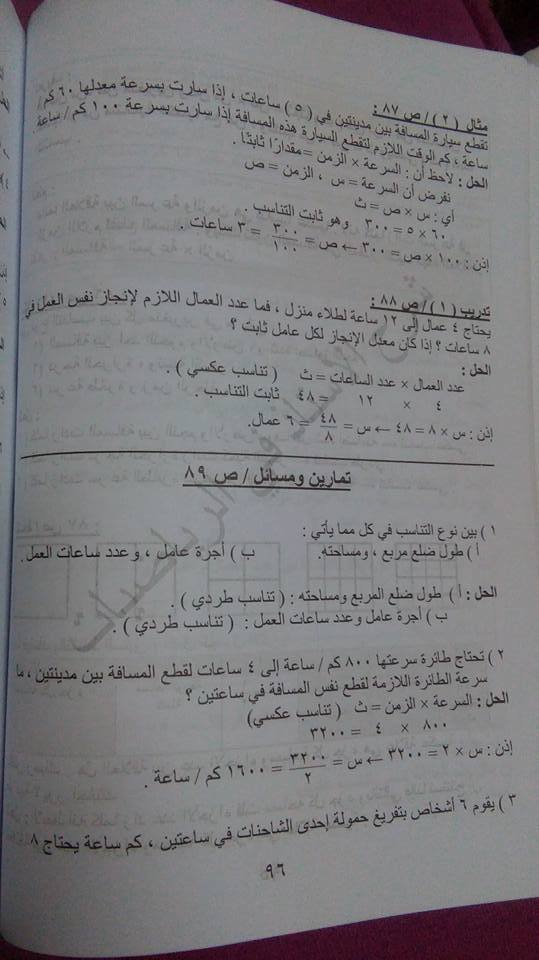 مثال ( ٢ ) / ص ٨٧ :
تقطع سيارة المسافة بين مدينتين في ( ٥ ) ساعات ، إذا سارت بسرعة معدلها ٦٠ كم /
ساعة ، كم الوقت اللازم لتقطع السيارة هذه المسافة إذا سارت بسرعة ١٠٠ كم / ساعة
الحل : لاحظ أن : السرعة × الزمن = مقدارًا ثابتًا .
نفرض أن السرعة = س ، الزمن = ص
أي : س × ص = ث
٦٠ × ٥ = ٣٠٠ وهو ثابت التناسب .
إذن : ١٠٠ × ص = ٣٠٠ ← ص = ٣٠٠ / ١٠٠ = ٣ ساعات .
تدريب ( ١ ) / ص ٨٨ :
يحتاج ٤ عمال إلى ١٢ ساعة لطلاء منزل ، فما عدد العمال اللازم لإنجاز نفس العمل في
٨ ساعات ؟ إذا كان معدل الإنجاز لكل عامل ثابت ؟
الحل :
عدد العمال × عدد الساعات = ث ( تناسب عكسي ) .
٤ × ١٢ = ٤٨ ثابت التناسب .
إذن : س × ٨ = ٤٨ ← س = ٤٨ / ٨ = ٦ عمال.
تمارين ومسائل / ص ٨٩
١ ) بين نوع التناسب في كل مما يأتي :
أ ) طول ضلع مربع ، ومساحته. ب ) أجرة عامل ، وعدد ساعات العمل.
الحل : أ ) طول ضلع المربع ومساحته : ( تناسب طردي ) .
ب ) أجرة عامل وعدد ساعات العمل : ( تناسب طردي ) .
٢ ) تحتاج طائرة سرعتها ٨٠٠ كم / ساعة إلى ٤ ساعات لقطع المسافة بين مدينتين ، ما
سرعة الطائرة اللازمة لقطع نفس المسافة في ساعتين ؟
الحل : السرعة × الزمن = ث ( تناسب عكسي)
٨٠٠ × ٤ = ٣٢٠٠
إذن : س × ٢ = ٣٢٠٠ ← س = ٣٢٠٠ / ٢ = ١٦٠٠ كم / ساعة .
٣ ) يقوم ٦ أشخاص بتفريغ حمولة إحدى الشاحنات في ساعتين ، كم ساعة يحتاج ٨
٩٦